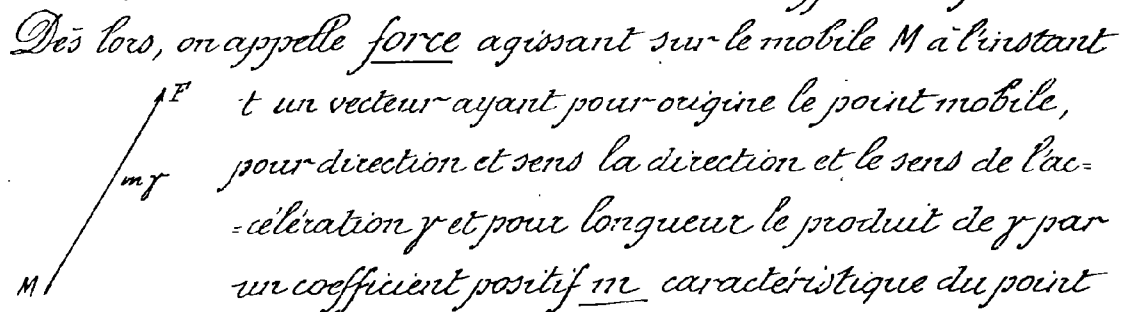 Dès lors, on appelle force agissant sur le mobile M à l'instant
t un vecteur ayant pour origine le point mobile,
pour direction et sens la direction et le sens de l'ac=
=célération γ et pour longueur le produit de γ par
un coefficient positif m caractéristique du point
F
mγ
M